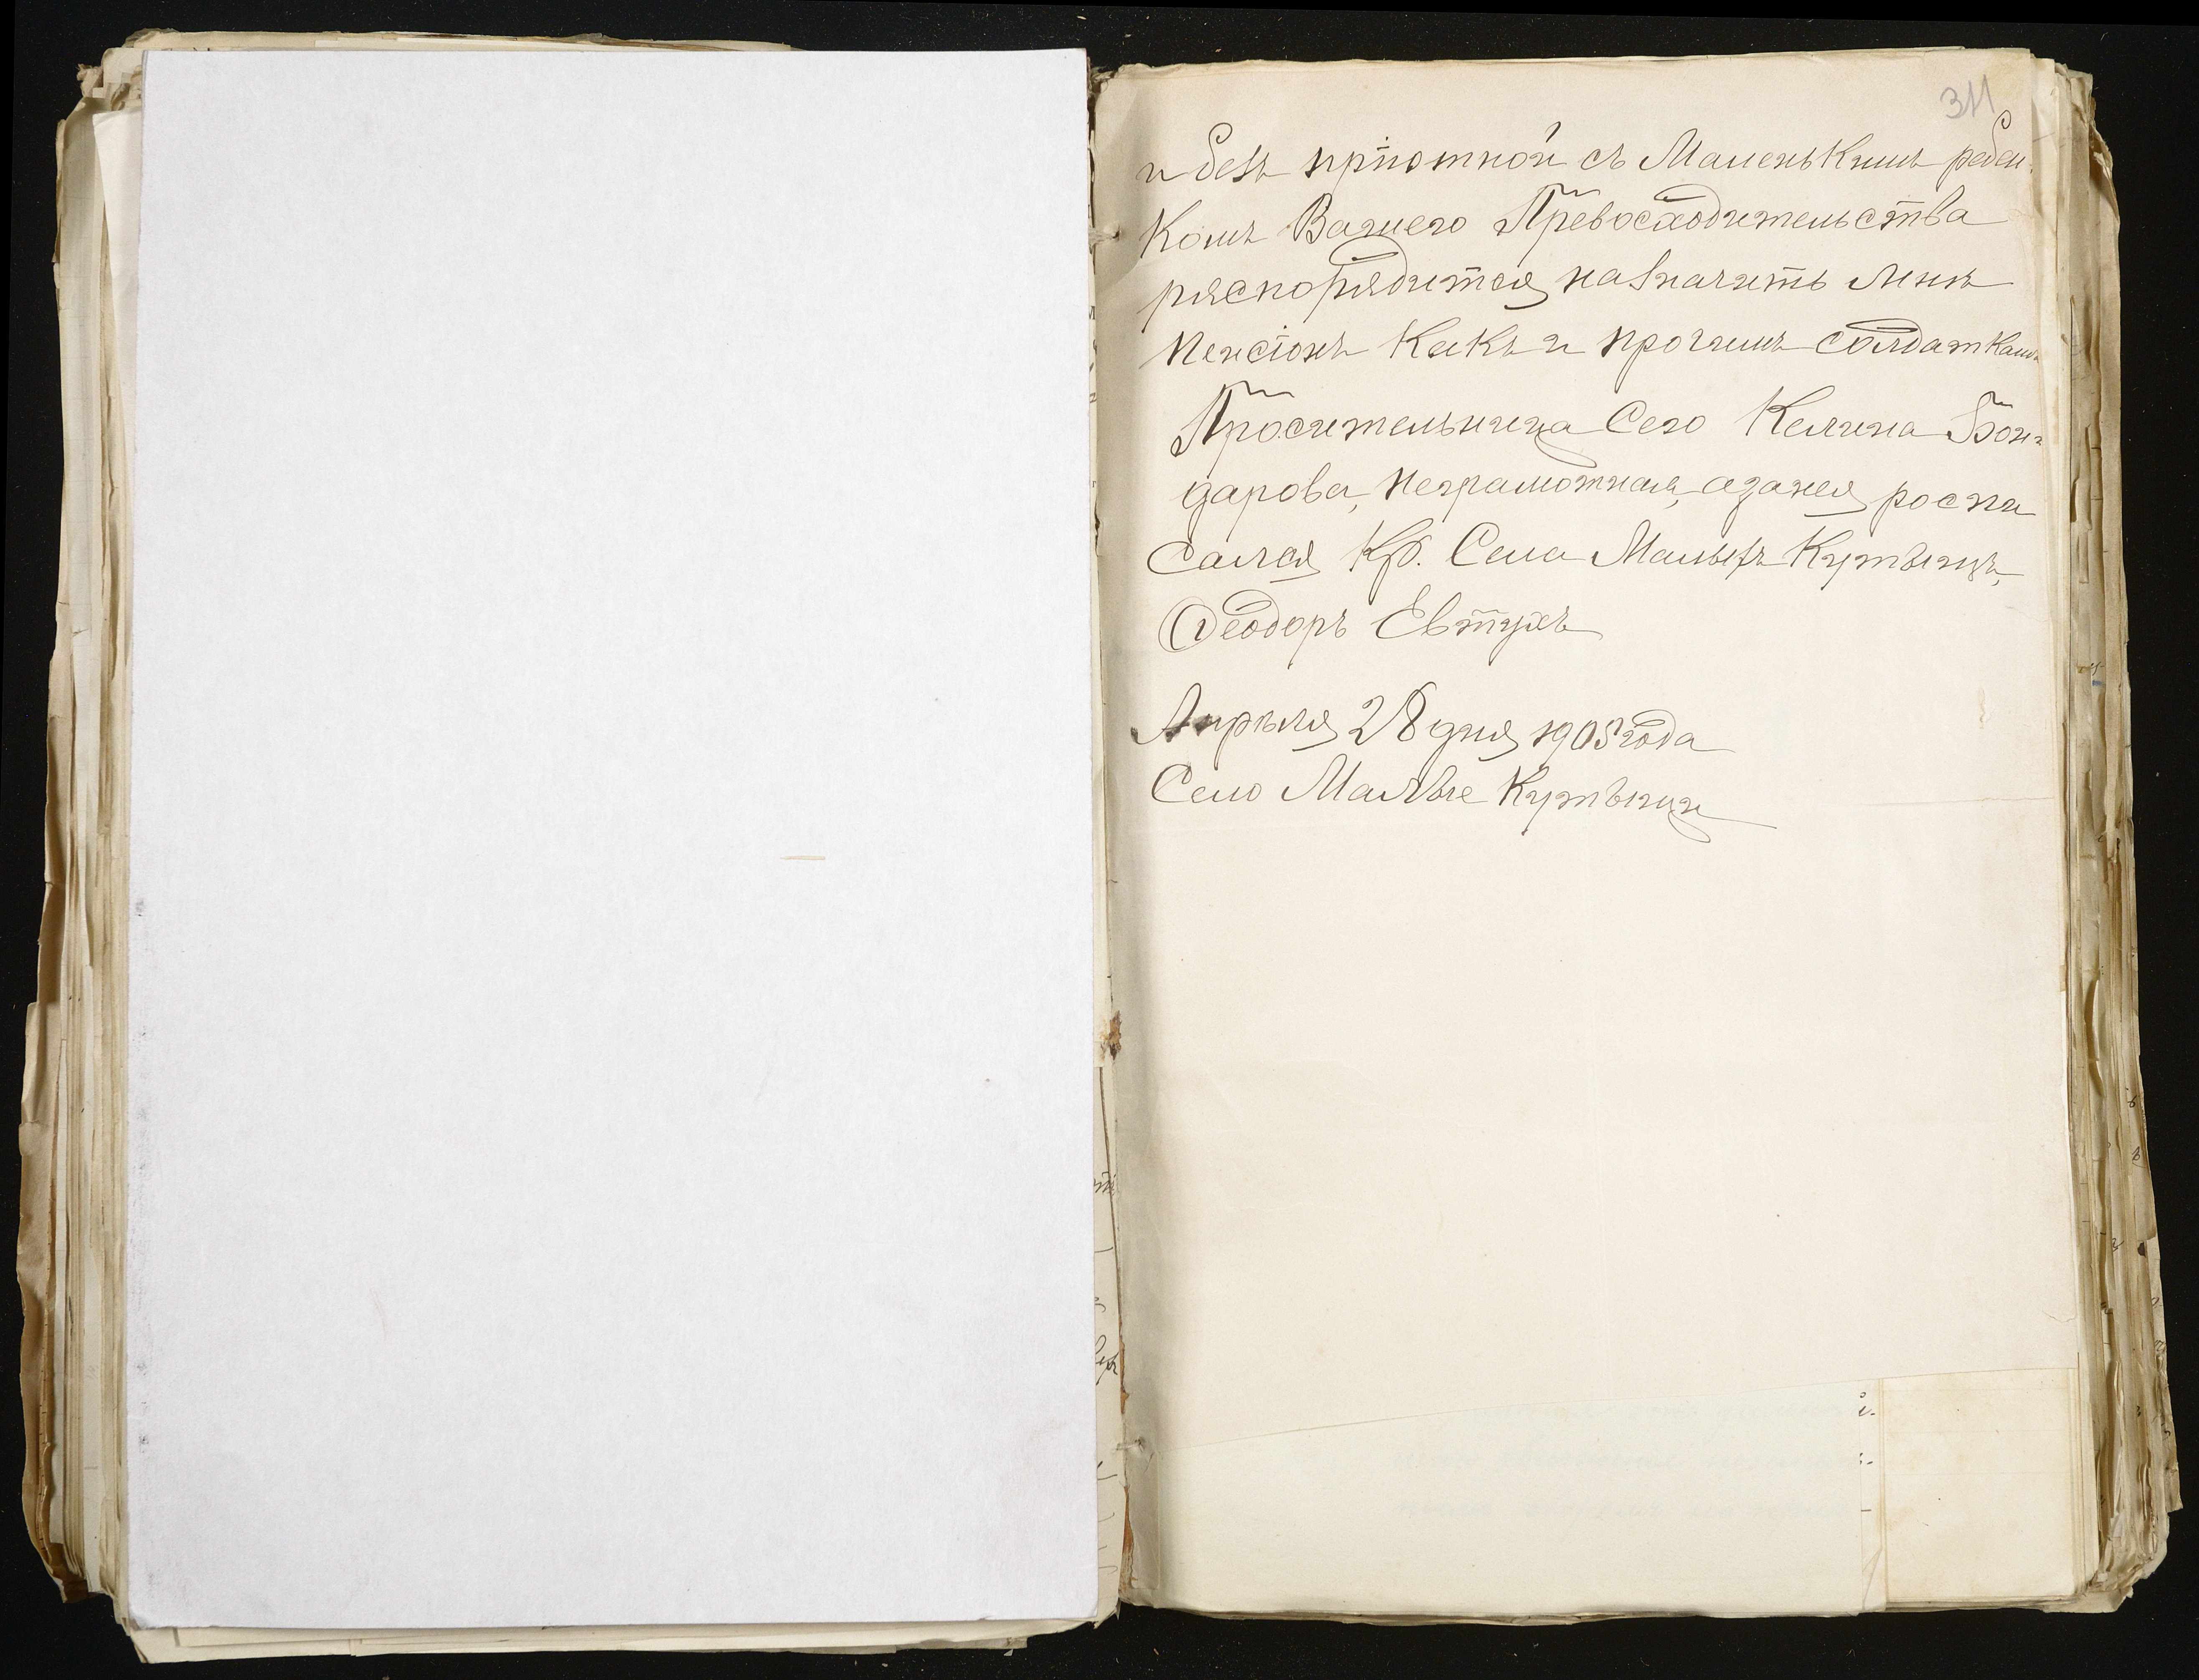 311
и безъ пріютной съ Маленькимъ ребен-
комъ Вашего Превосходительства
распорядится назначить Мнѣ
пенсіонъ Какъ и прочимъ солдаткамъ
Просительница Сего Келина Бон-
дарова, неграмотная, азанея роспи
сался Кр. Села Малыхъ Кутыщъ,
Феодоръ Евтухъ
Апрѣля 28 дня 1905 года
Село Малые Кутыщи